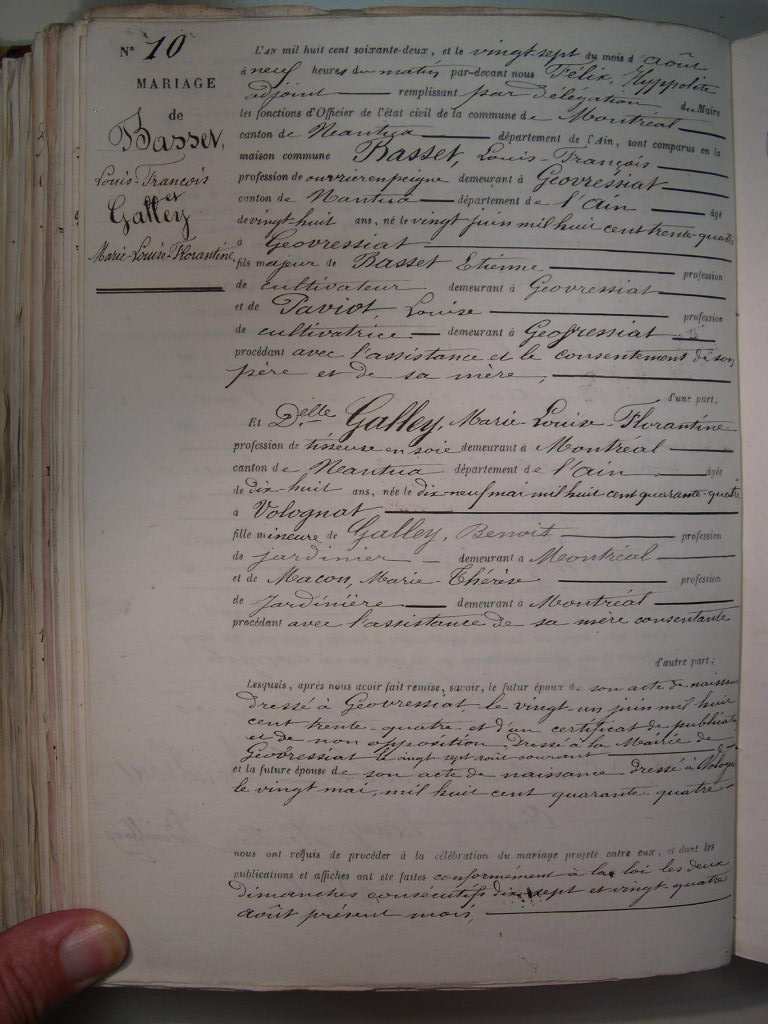 N° 10
MARIAGE
de
Basset,
Louis-François
et
Galley
Marie-Louise-Florantine,
L'AN mil huit cent soixante-deux, et le vingt sept du mois d'août
à neuf heures du matin par-devant nous Félix, Hyppolite
adjoint remplissant par délégation du Maire
les fonctions d'Officier de l'état civil de la commune de Montréal
canton de Nantua département de l'Ain, sont comparus en la
maison commune Basset, Louis-François
profession de ouvrier en peigne demeurant à Géovressiat
canton de Nantua département de l'Ain âgé
de vingt huit ans, né le vingt juin mil huit cent trente-quatre
à Geovressiat
fils majeur de Basset Etienne profession
de cultivateur demeurant à Géovressiat
et de Paviot, Louise profession
de cultivatrice demeurant à Geofressiat
procédant avec l'assistance et le consentement de son
père et de sa mère,
d'une part;
Et Delle Galley, Marie-Louise-Florantine
profession de tisseuse en soie demeurant à Montréal
canton de Nantua département de l'Ain âgée
de dix-huit ans, née le dix-neuf mai mil huit cent quarante-quatre
à Volognat
fille mineure de Galley, Benoit profession
de jardinier demeurant à Montréal
et de Macon, Marie-Thérèse profession
de Jardinière demeurant à Montréal
procédant avec l'assistance de sa mère consentante
d'autre part;
Lesquels, après nous avoir fait remise, savoir, le futur époux de son acte de naissan
dressé à Géovressiat le vingt un juin mil huit
cent trente-quatre et d'un certificat de publicat
et de non opposition, dressé à la Mairie de
Géovressiat le vingt sept août courant
et la future épouse de son acte de naissance dressé à Volog
le vingt mai, mil huit cent quarante quatre
nous ont requis de procéder à la célébration du mariage projeté entre eux, et dont les
publications et affiches ont été faites conformément à la loi les deux
dimanches consécutifs dix-sept et vingt-quatre
août présent mois,